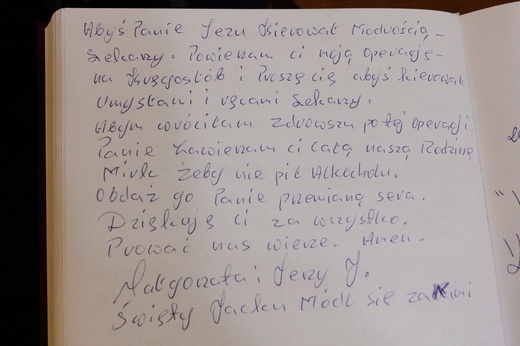 Abyś Panie Jezu Kierował Mądrością -
Lekarzy. Powierzam ci moją operację -
na Kręgosłób i Proszę cię abyś kierował
Umysłami i rękami Lekarzy.
Abym wróciłam Zdrowsza po tej operacji.
Panie Zawierzam ci całą naszą Rodzinę
żeby nie pił Alkocholu.
Obdaż go Panie przemianą serca.
Dziękuję ci za wszystko.
Prować nas wierze. Amen.
Małgorzata i Jerzy J.
Święty Módl się za